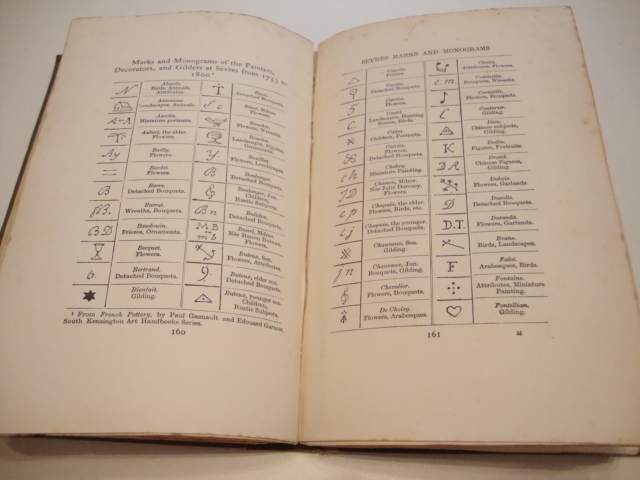 Marks and Monograms of the Painters,
Decorators, and Gilders at Sèvres from 1753 to
1800¹
N
Birds, Animals,
Attributes.
Detached Bouquets.
Landscapes, Animals.
A-A
Miniature portraits.
Flowers, Wreaths.
Aubert, the elder.
Flowers.
Ay
Bailly.
Flowers.
Y
Bouillat.
Flowers, Landscapes.
=
Bardet.
Flowers.
B
Boulanger.
Detached Bouquets.
B
Barre.
Detached Bouquets.
Boulanger, Jun.
Children,
Rustic Subjects.
Barrat.
Wreaths, Bouquets.
Bn
Bulidon.
Detached Bouquets.
BD
Baudouin.
Friezes, Ornaments.
M B
m b
Bunel, Mdme.
Née Manon Buteux,
Flowers.
Bertrand.
Detached Bouquets.
Buteux, Sen.
Flowers, Attributes.
6.
Detached Bouquets.
9.
Buteux, elder son.
Detached Bouquets.
Bienfait.
Gilding.
Buteux, younger son.
Children,
Rustic Subjects.
¹ From French Pottery, by Paul Gasnault and Edouard Garnier,
South Kensington Art Handbooks Series.
160
SÈVRES MARKS AND MONOGRAMS
Friezes.
Choisy.
Attributes, Flowers.
Detached Bouquets.
c.m
Commelin.
Bouquets, Wreaths.
Carrier.
Flowers.
Cornaille.
Flowers, Bouquets.
C.
Castel.
Landscapes, Hunting
Scenes, Birds.
C
Couturier.
Gilding.
Caton.
Children, Portraits.
Dieu.
Chinese subjects,
Gilding.
Catrice.
Flowers.
K
Dodin.
Figures, Portraits.
ch
Chabry.
Miniature Painting.
DR
Drand.
Chinese Figures,
Gilding.
JD
Chanou, Mdme.
Née Julie Durosey,
Flowers.
Dubois.
Flowers, Garlands.
cp
Chapuis, the elder.
Flowers, Birds, etc.
Dusolle.
Detached Bouquets.
j c
Chapuis, the younger.
Detached Bouquets.
D.T.
Dutanda.
Flowers, Garlands.
Chauvaux, Sen.
Gilding.
Evans.
Birds, Landscapes.
jn
Chauvaux, Jun.
Bouquets, Gilding.
F
Falot.
Arabesques, Birds.
Chevalier.
Flowers, Bouquets.
Fontaine.
Attributes, Miniature
Painting.
De Choisy.
Flowers, Arabesques.
Fontelliau.
Gilding.
161
M